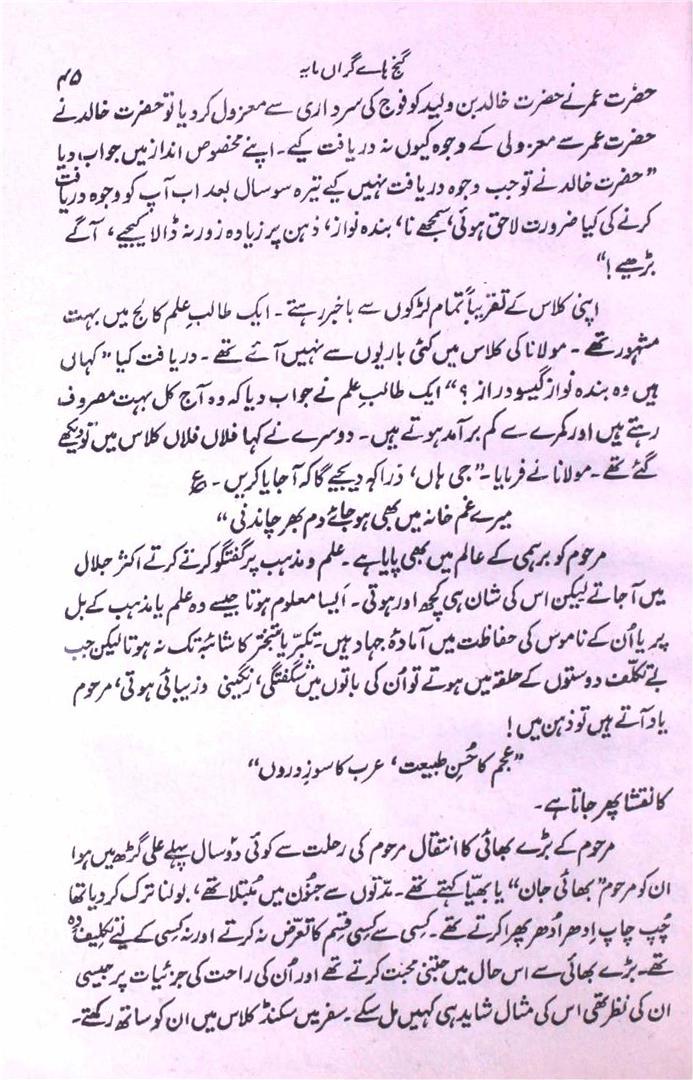 گنج ہائے گراں مایہ
۴۵
حضرت عمرؓ نے حضرت خالد بن ولید کو فوج کی سرداری سے معزول کر دیا تو حضرت خالد نے
حضرت عمر سے معزولی کے وجوہ کیوں نہ دریافت کیے۔ اپنے مخصوص انداز میں جواب دیا
”حضرت خالد نے تو جب وجوہ دریافت نہیں کیے تیرہ سو سال بعد اب آپ کو وجوہ دریافت
کرنے کی کیا ضرورت لاحق ہوئی، سمجھے نا، بندہ نواز، ذہن پر زیادہ زور نہ ڈالا کیجیے، آگے
بڑھیے!“
اپنی کلاس کے تقریباً تمام لڑکوں سے باخبر رہتے۔ ایک طالب علم کالج میں بہت
مشہور تھے۔ مولانا کی کلاس میں کئی باریوں سے نہیں آئے تھے۔ دریافت کیا ”کہاں
ہیں وہ بندہ نواز گیسو دراز؟“ ایک طالب علم نے جواب دیا کہ وہ آج کل بہت مصروف
رہتے ہیں اور کمرے سے کم برآمد ہوتے ہیں۔ دوسرے نے کہا فلاں فلاں کلاس میں تو دیکھے
گئے تھے۔ مولانا نے فرمایا۔ ”جی ہاں، ذرا کہہ دیجیے گا کہ آ جایا کریں۔ ع
میرے غم خانہ میں بھی ہو جائے دم بھر چاندنی“
مرحوم کو برہمی کے عالم میں بھی پایا ہے۔ علم و مذہب پر گفتگو کرتے کرتے اکثر جلال
میں آ جاتے لیکن اس کی شان ہی کچھ اور ہوتی۔ ایسا معلوم ہوتا جیسے وہ علم یا مذہب کے بل
پر یا اُن کے ناموس کی حفاظت میں آمادۂ جہاد ہیں۔ تکبر یا تبختر کا شائبہ تک نہ ہوتا لیکن جب
بے تکلّف دوستوں کے حلقہ میں ہوتے تو اُن کی باتوں میں شگفتگی، رنگینی و زیبائی ہوتی، مرحوم
یاد آتے ہیں تو ذہن میں!
”عجم کا حُسنِ طبیعت، عرب کا سوزِ دروں“
کا نقشا پھر جاتا ہے۔
مرحوم کے بڑے بھائی کا انتقال مرحوم کی رحلت سے کوئی دو سال پہلے علی گڑھ میں ہوا
ان کو مرحوم ”بھائی جان“ یا بھیّا کہتے تھے۔ مدّتوں سے جنُون میں مُبتلا تھے، بولنا ترک کر دیا تھا
چُپ چاپ اِدھر اُدھر پھرا کرتے تھے۔ کسی سے کسی قسِم کا تعرّض نہ کرتے اور نہ کسی کے لیے تکلیف دہ
تھے۔ بڑے بھائی سے اس حال میں جتنی محبت کرتے تھے اور اُن کی راحت کی جزئیات پر جیسی
ان کی نظر تھی اس کی مثال شاید ہی کہیں مل سکے۔ سفر میں سکنڈ کلاس میں ان کو ساتھ رکھتے۔